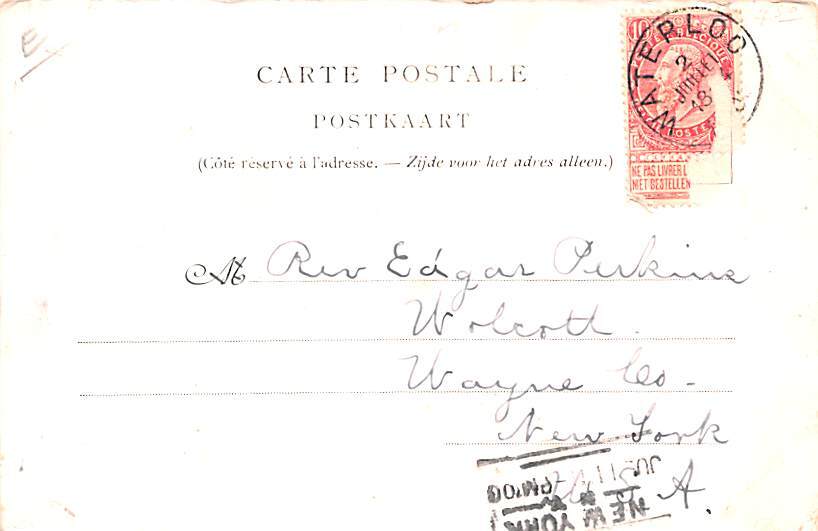 CARTE POSTALE
POSTKAART
(Côté réservé à l'adresse. — Zijde voor het adres alleen.)
10
POSTES
NE PAS LIVRER L
NIET BESTELLEN
WATERLOO
2
JUILLET
18
M Rev Edgar Perkins
Wolcott.
Wayne Co-
New York
U S A.
NEW YORK